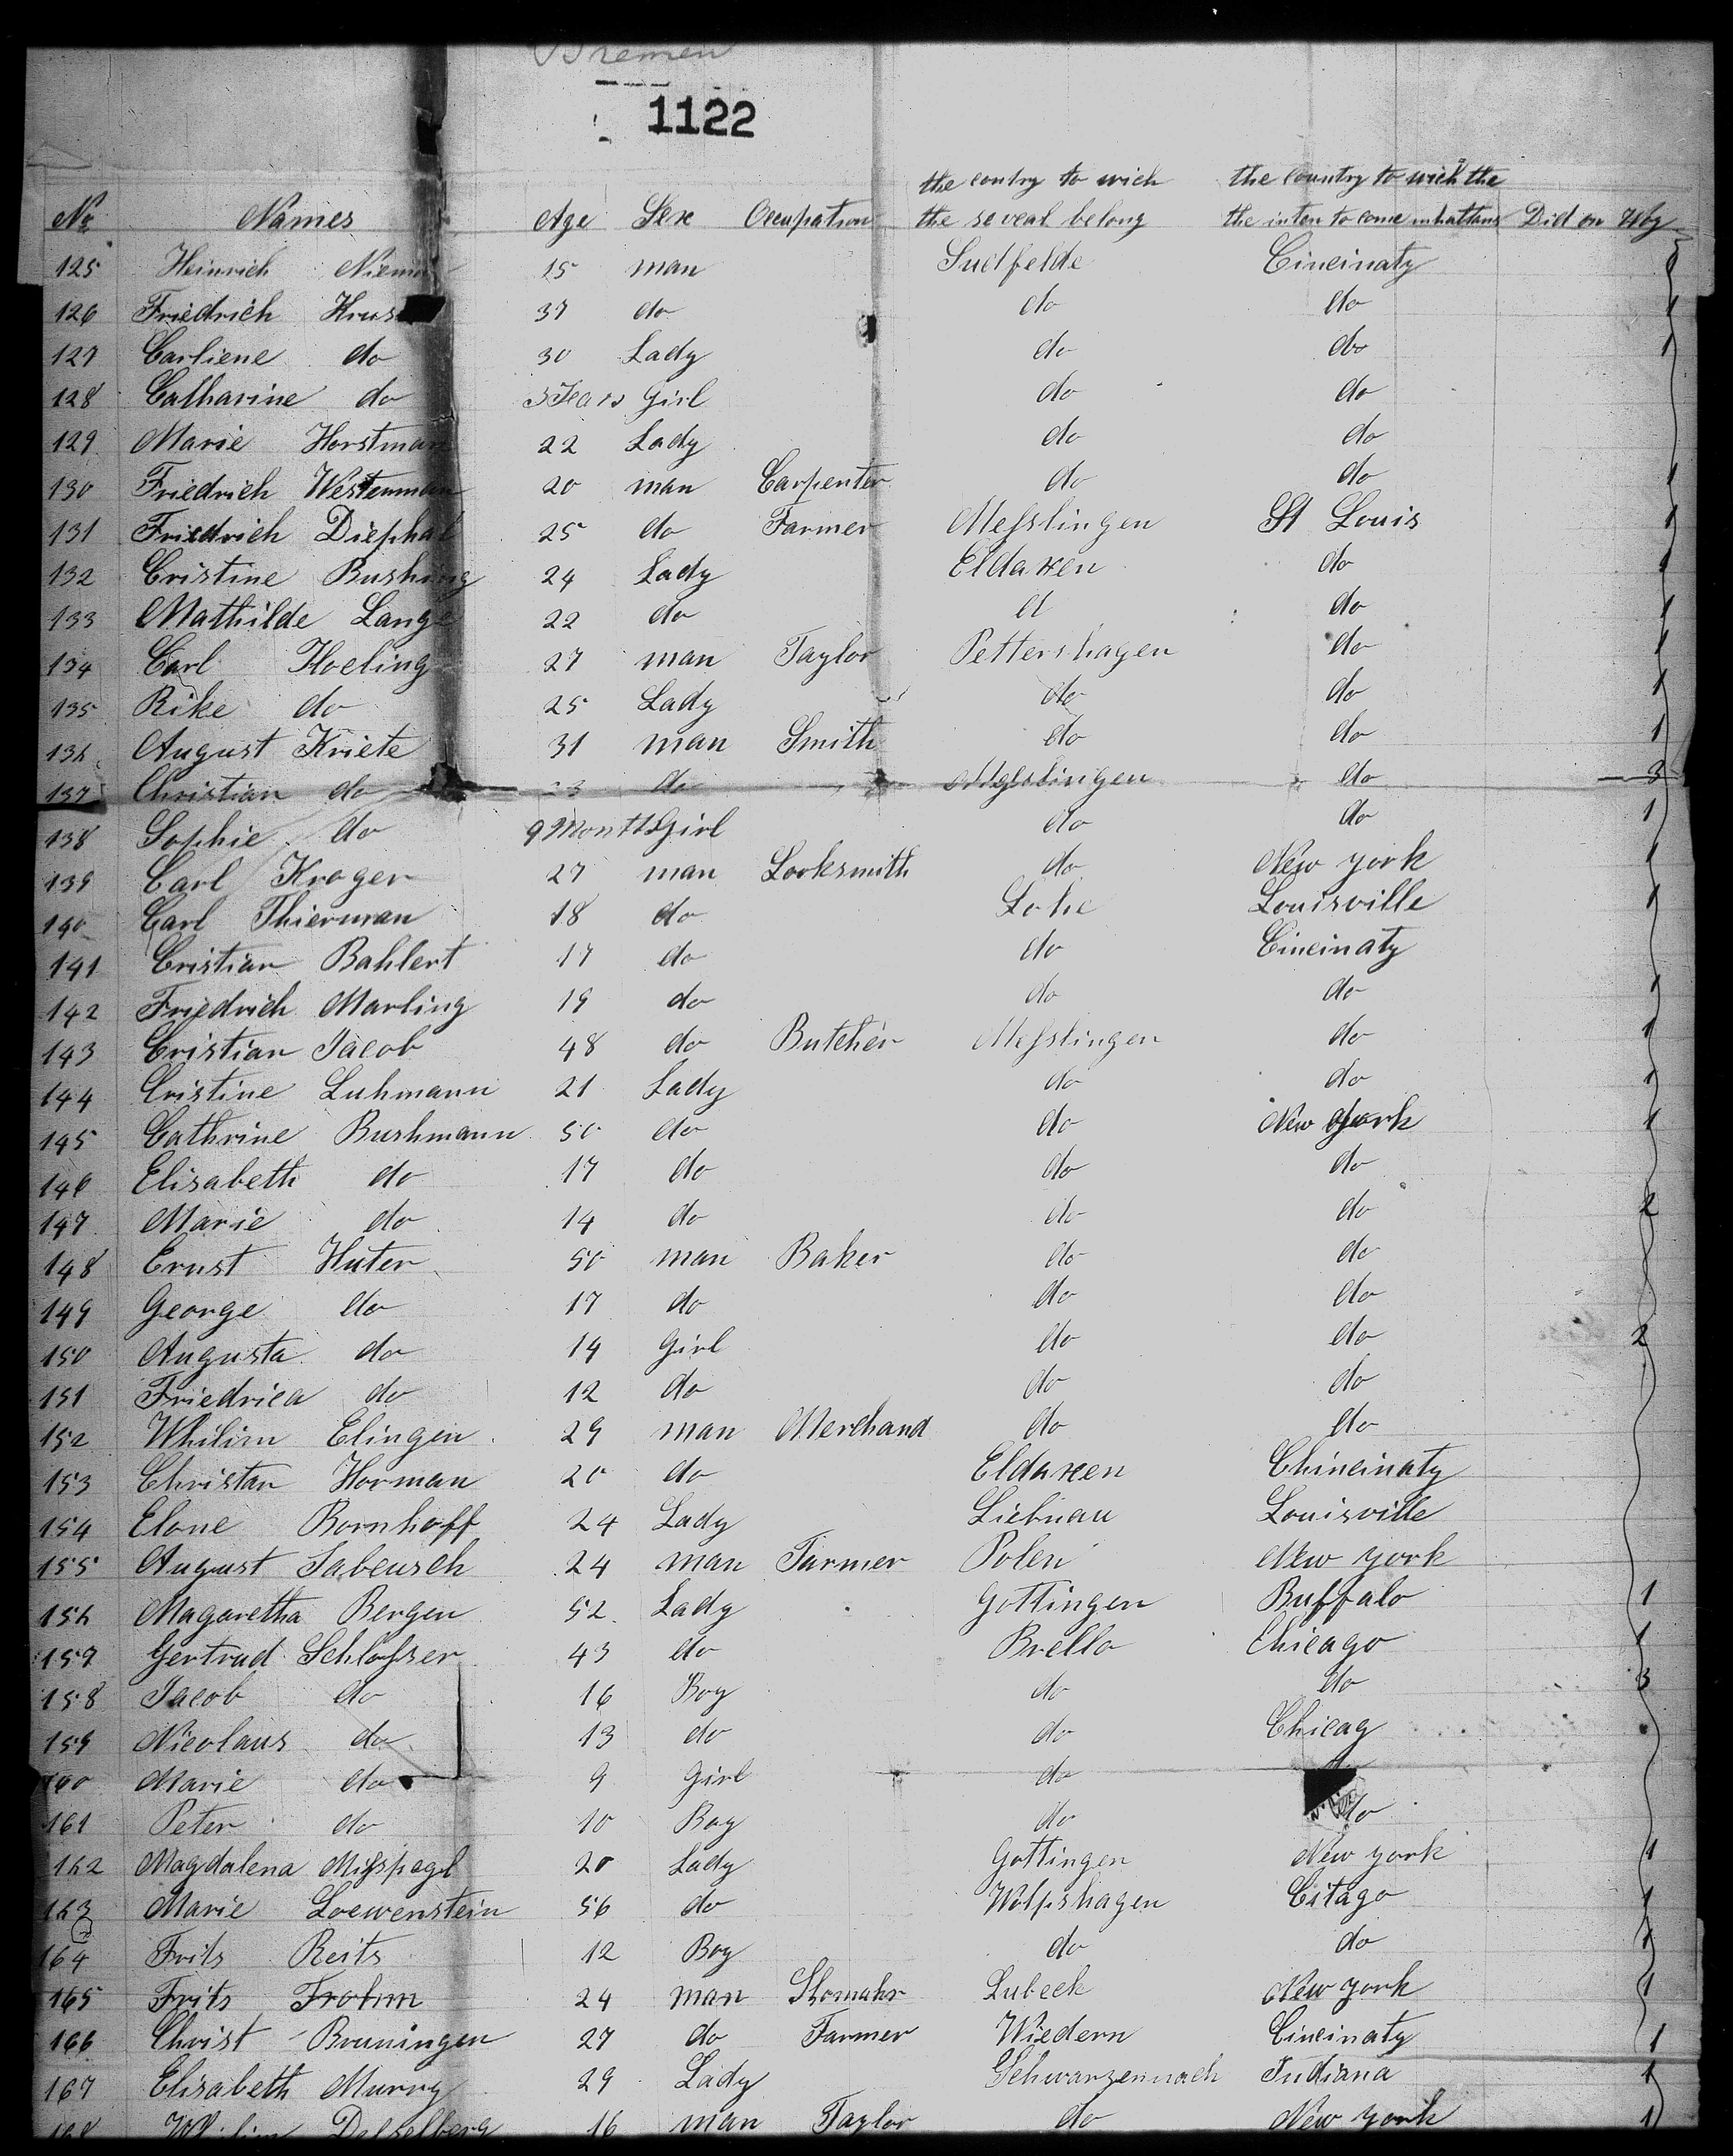 Bremen
1122
the contry to wich the country to wich the
No Names Age Sex Occupation the several belong the inten to come inhattans Did on Wby
125 Heinrich 15 man Sudfelde Cincinaty
126 Friedrich Kruse 37 do do do 1
127 Carliene do 30 Lady do do 1
128 Catharine do 3 Years Girl do do
129 Marie Horstman 22 Lady do do
130 Friedrich Westenman 20 man Carpenter do do 1
131 Friedrich Diephal 25 do Farmer Messlingen St Louis 1
132 Cristine Bushing 24 Lady Eldaxen do 1
133 Mathilde Lange 22 do d do 1
134 Carl Hoeling 27 man Taylor Pettershagen do 1
135 Rike do 25 Lady do do 1
136 August Kriete 31 man Smith do do 1
137 Christian do 23 do Messlingen do 3
138 Sophie do 9 Months Girl do do 1
139 Carl Kroger 27 man Locksmith do New york 1
140 Carl Thierman 18 do Lohe Louisville 1
141 Cristian Bahlert 17 do do Cincinaty
142 Friedrich Marling 19 do do do 1
143 Cristian Jacob 48 do Butcher Messlingen do 1
144 Cristine Luhmann 21 Lady do do 1
145 Cathrine Bushmann 50 do do New york 1
146 Elisabeth do 17 do do do
147 Marie do 14 do do do 2
148 Ernst Huter 50 man Baker do do
149 George do 17 do do do
150 Augusta do 14 Girl do do 2
151 Friedrica do 12 do do do
152 Whilim Elingen 29 man Merchand do do
153 Christan Horman 20 do Eldaxen Chincinaty
154 Elone Bornhoff 24 Lady Liebnau Louisville
155 August Sabeusch 24 man Farmer Polen New york
156 Magaretha Bergen 52 Lady Gottingen Buffalo 1
157 Gertrud Schlosser 43 do Brello Chicago 1
158 Jacob do 16 Boy do do 3
159 Nicolaus do 13 do do Chicag
160 Marie do 9 Girl do
161 Peter do 10 Boy do do
162 Magdalena Misspagel 20 Lady Gottingen New york 1
163 Marie Loewenstein 56 do Wolfshagen Citago 1
164 Frits Reits 12 Boy do do 1
165 Frits Frohm 24 man Lubeck New york 1
166 Christ Bruningen 27 do Farmer Wiedern Cincinaty 1
167 Elisabeth Murry 29 Lady Schwarzennach Indiana 1
168 Whilim Desselberg 16 man Taylor do New york 1